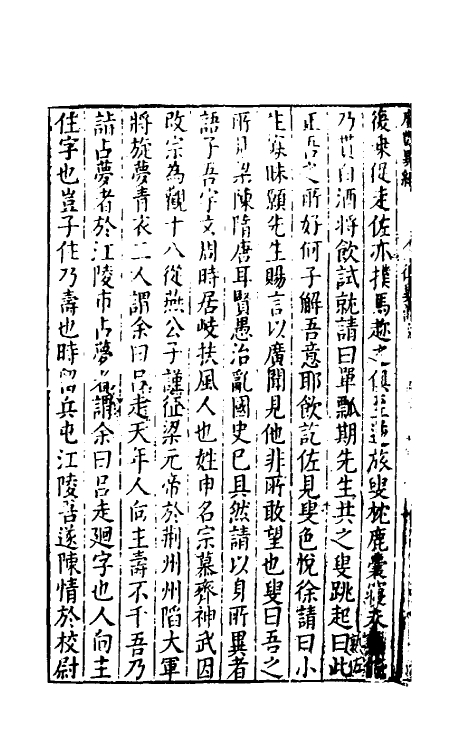 後乘促走佐亦撲馬趂之俱至逆旅叟枕鹿囊寢未熟佐
乃貰白酒將飲試就請曰單瓢期先生共之叟跳起曰此
正吾之所好何子解吾意耶飲訖佐見叟色悅徐請曰小
生寡昧願先生賜言以廣聞見他非所敢望也叟曰吾之
所見梁陳隋唐耳賢愚治亂國史已具然請以身所異者
語子吾宇文周時居岐扶風人也姓申名宗慕齊神武因
改宗為觀十八從燕公子謹征梁元帝於荆州州陷大軍
將旋夢青衣二人謂余曰呂走天年人向主壽不千吾乃
詣占夢者於江陵市占夢者謂余曰呂走廻字也人向主
住字也豈子住乃壽也時留兵屯江陵吾遂陳情於校尉